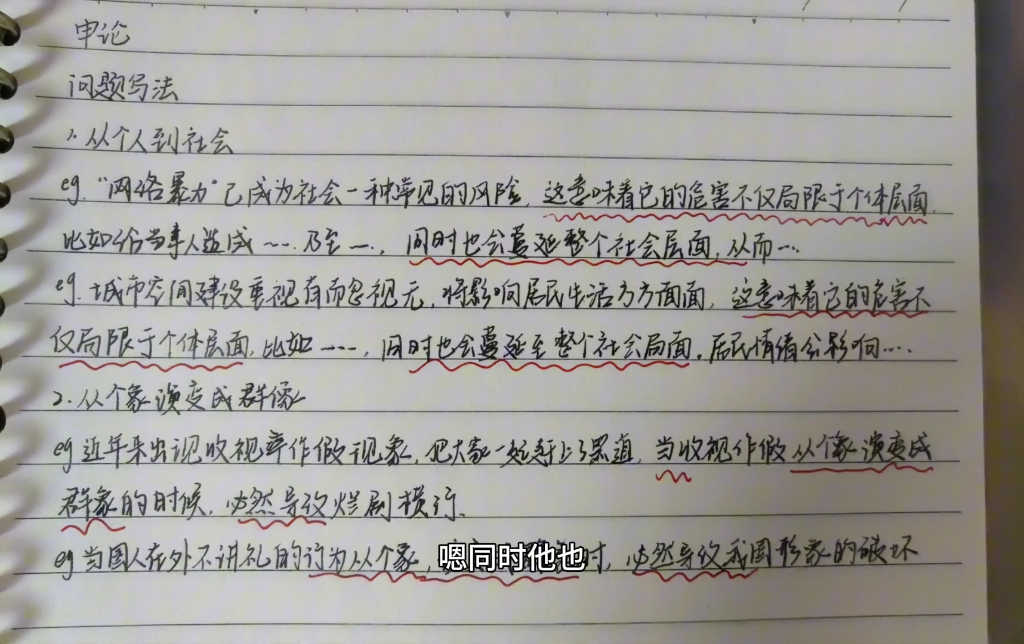 申论
问题写法
1. 从个人到社会
eg. "网络暴力"已成为社会一种常见的风险,这意味着它的危害不仅局限于个体层面,
比如给当事人造成……乃至……,同时也会蔓延整个社会层面,从而……
eg. 城市空间建设重视有而忽视无,将影响居民生活方方面面,这意味着它的危害不
仅局限于个体层面,比如……,同时也会蔓延至整个社会局面,居民情绪会影响……
2. 从个象演变成群像
eg 近年来出现收视率作假现象,把大家一起赶上了黑道,当收视作假从个象演变成
群象的时候,必然导致烂剧横行。
eg 当国人在外不讲礼的行为从个象,时,必然导致我国形象的破坏
嗯同时他也